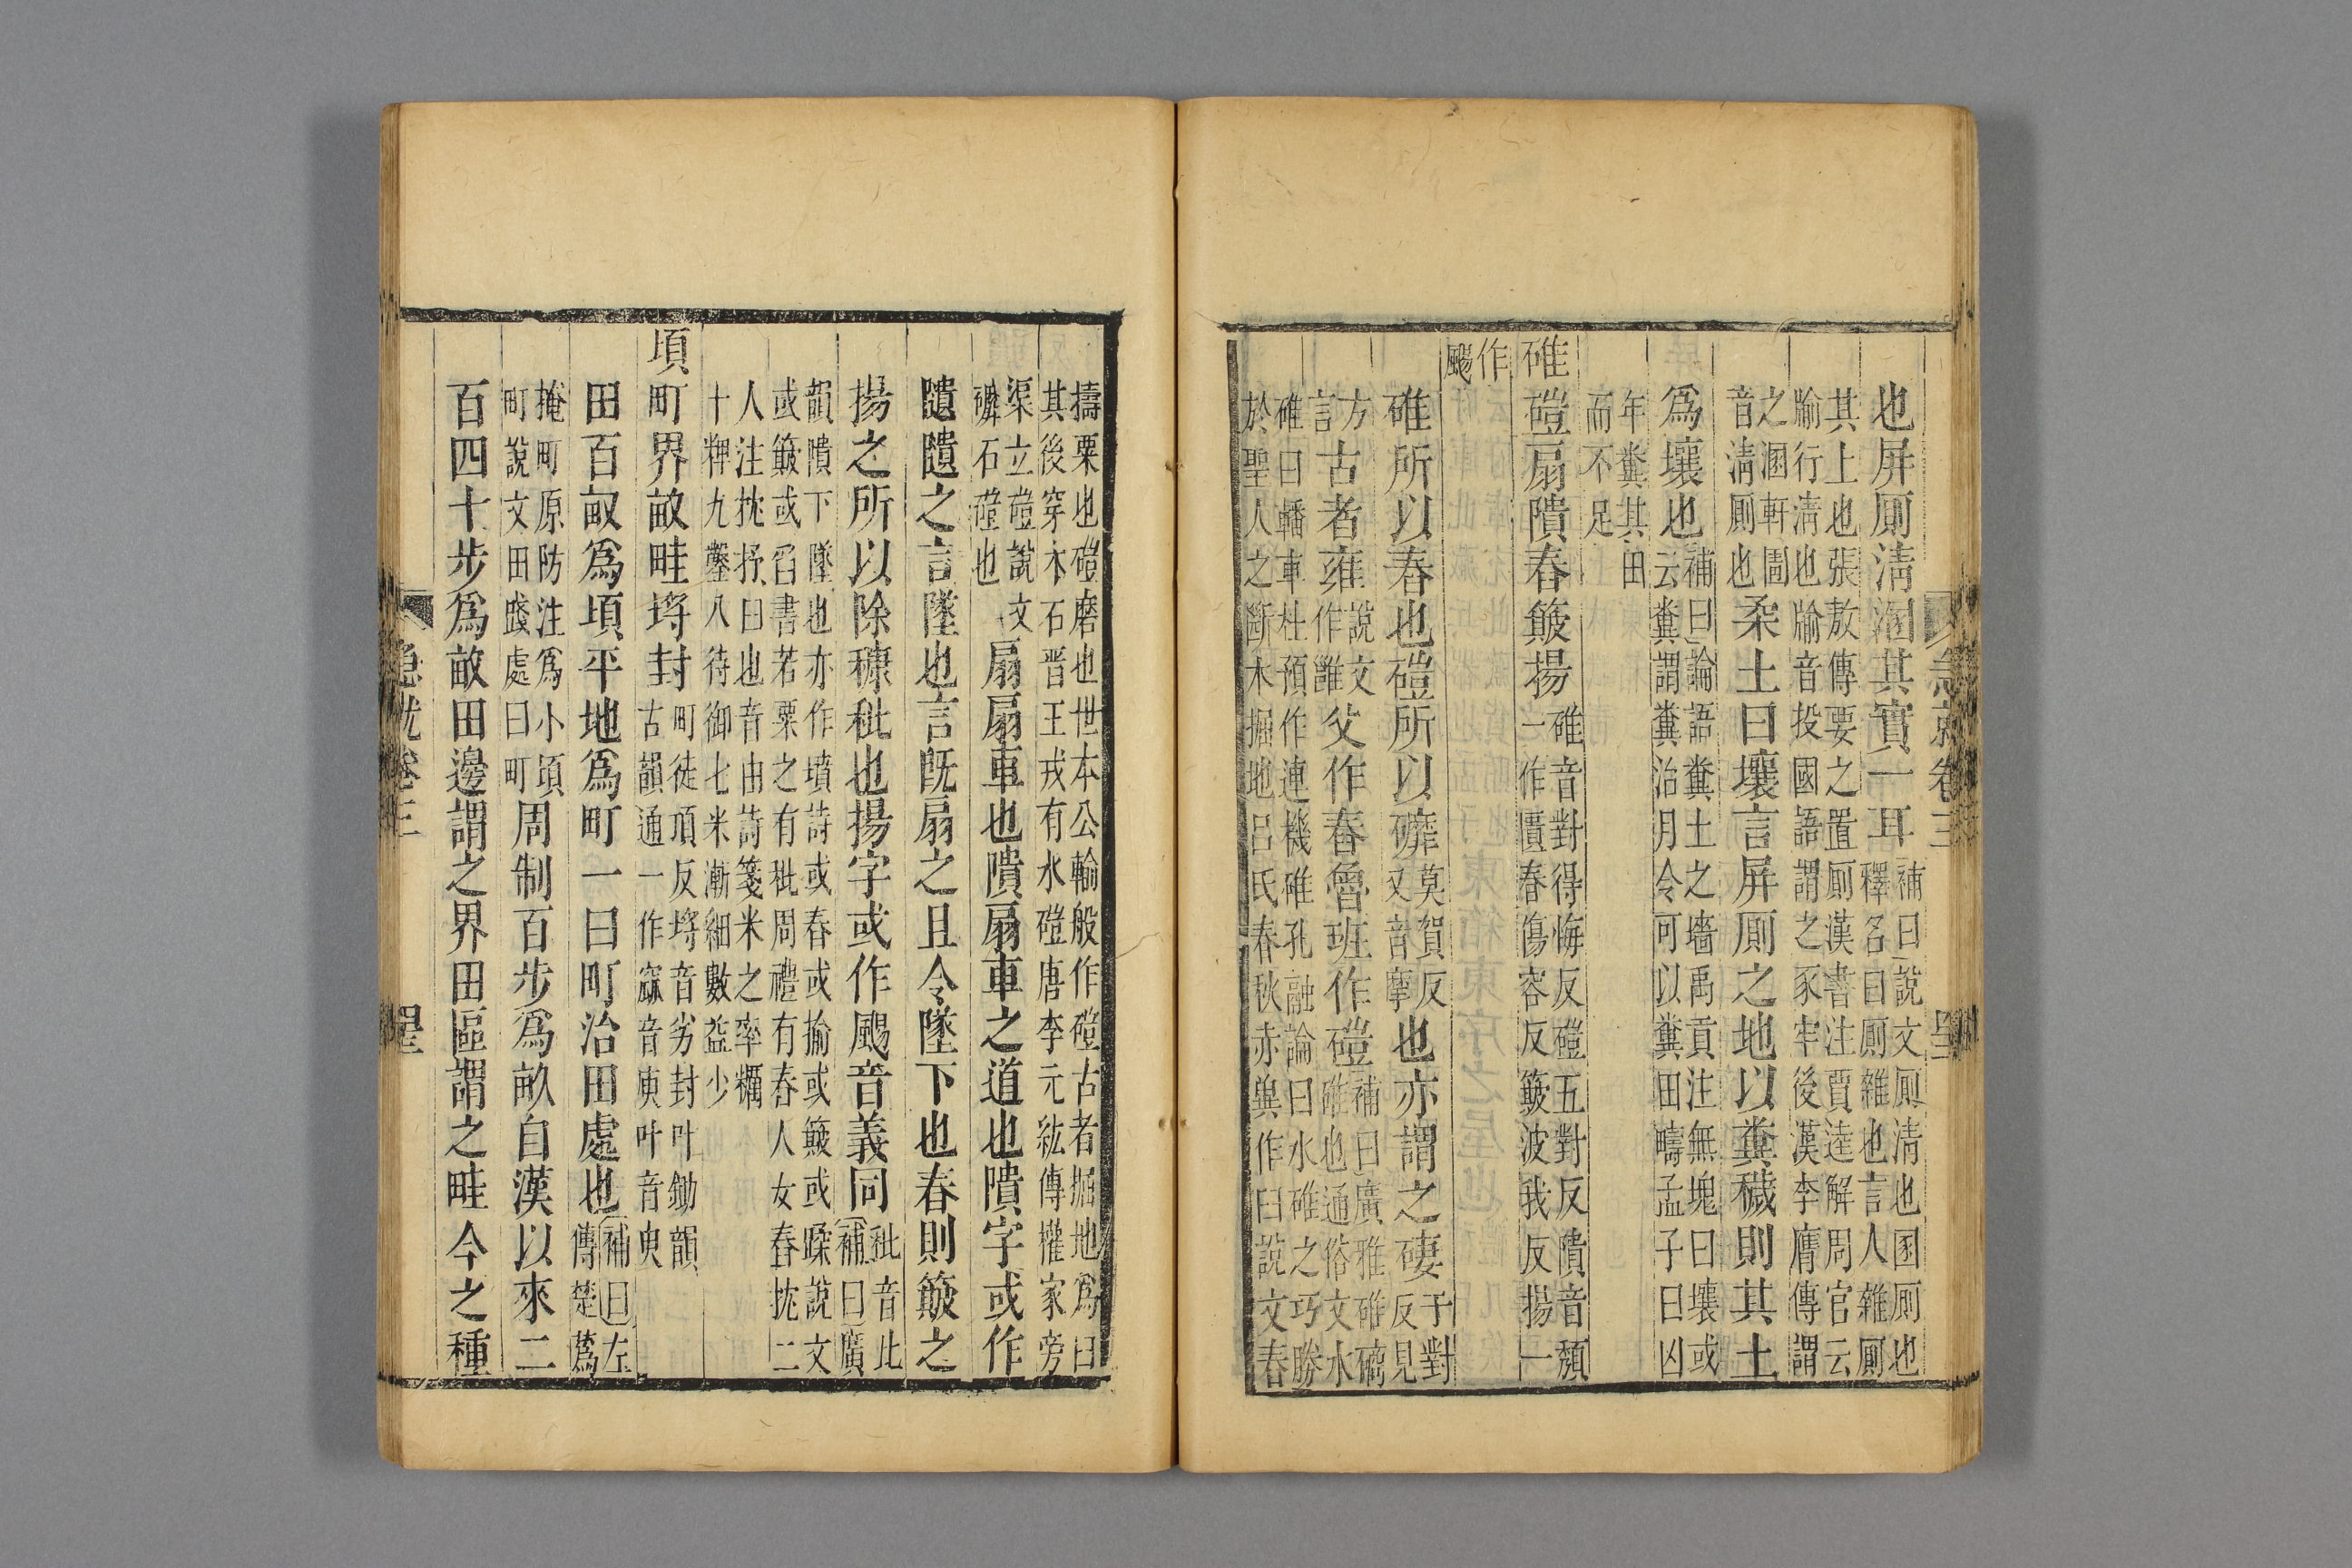 也屏厠清溷其實一耳補曰說文厠清也圂厠也
釋名曰厠雜也言人雜厠
其上也張敖傳要之置厠漢書注賈逵解周官云
牏行清也牏音投國語謂之豕牢後漢李膺傳謂
之溷軒圊
音清厠也柔土曰壤言屏厠之地以糞穢則其土
爲壤也補曰論語糞土之墻禹貢注無塊曰壤或
云糞謂糞治月令可以糞田疇孟子曰凶
年糞其田
而不足
碓磑扇隤舂簸揚碓音對得悔反磑五對反隤音頹
一作匱舂傷容反簸波我反揚一
作
颺
碓所以舂也磑所以䃺莫賀反
又音摩也亦謂之䃀于對
反見
方
言古者雍說文
作雝父作舂魯班作磑補曰廣雅碓䃤
碓也通俗文水
碓曰轓車杜預作連機碓孔融論曰水碓之巧勝
於聖人之斷木掘地呂氏春秋赤兾作臼說文舂
擣粟也磑磨也世本公輸般作磑古者掘地爲臼
其後穿木石晋王戎有水磑唐李元紘傳㩲家旁
渠立磑說文
䃺石磑也扇扇車也隤扇車之道也隤字或作
隤隤之言墜也言既扇之且令墜下也舂則簸之
揚之所以除穅秕也揚字或作颺音義同秕音此
補曰廣
韻隤下墜也亦作墳詩或舂或揄或簸或蹂說文
或簸或舀書若粟之有秕周禮有舂人女舂抌二
人注抌抒臼也音由詩箋米之率糲
十粺九鑿八待御七米漸細數益少
頃町界畝畦埒封町徒項反埒音劣封叶勛韻
古韻通一作窳音庾叶音臾
田百畝爲頃平地爲町一曰町治田處也補曰左
傳楚蔿
掩町原防注爲小頃
町說文田踐處曰町周制百步爲畝自漢以來二
百四十步爲畝田邊謂之界田區謂之畦今之種
急就卷三
急就卷三